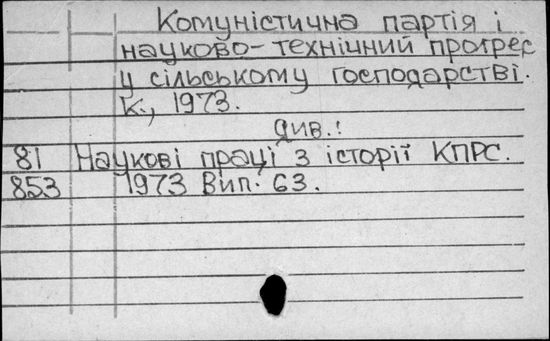 Комуністична партія і
науково-технічний прогрес
у сільському господарстві.
К., 1973.
див.:
81 Наукові праці з історії КПРС.
853 1973 Вип. 63.